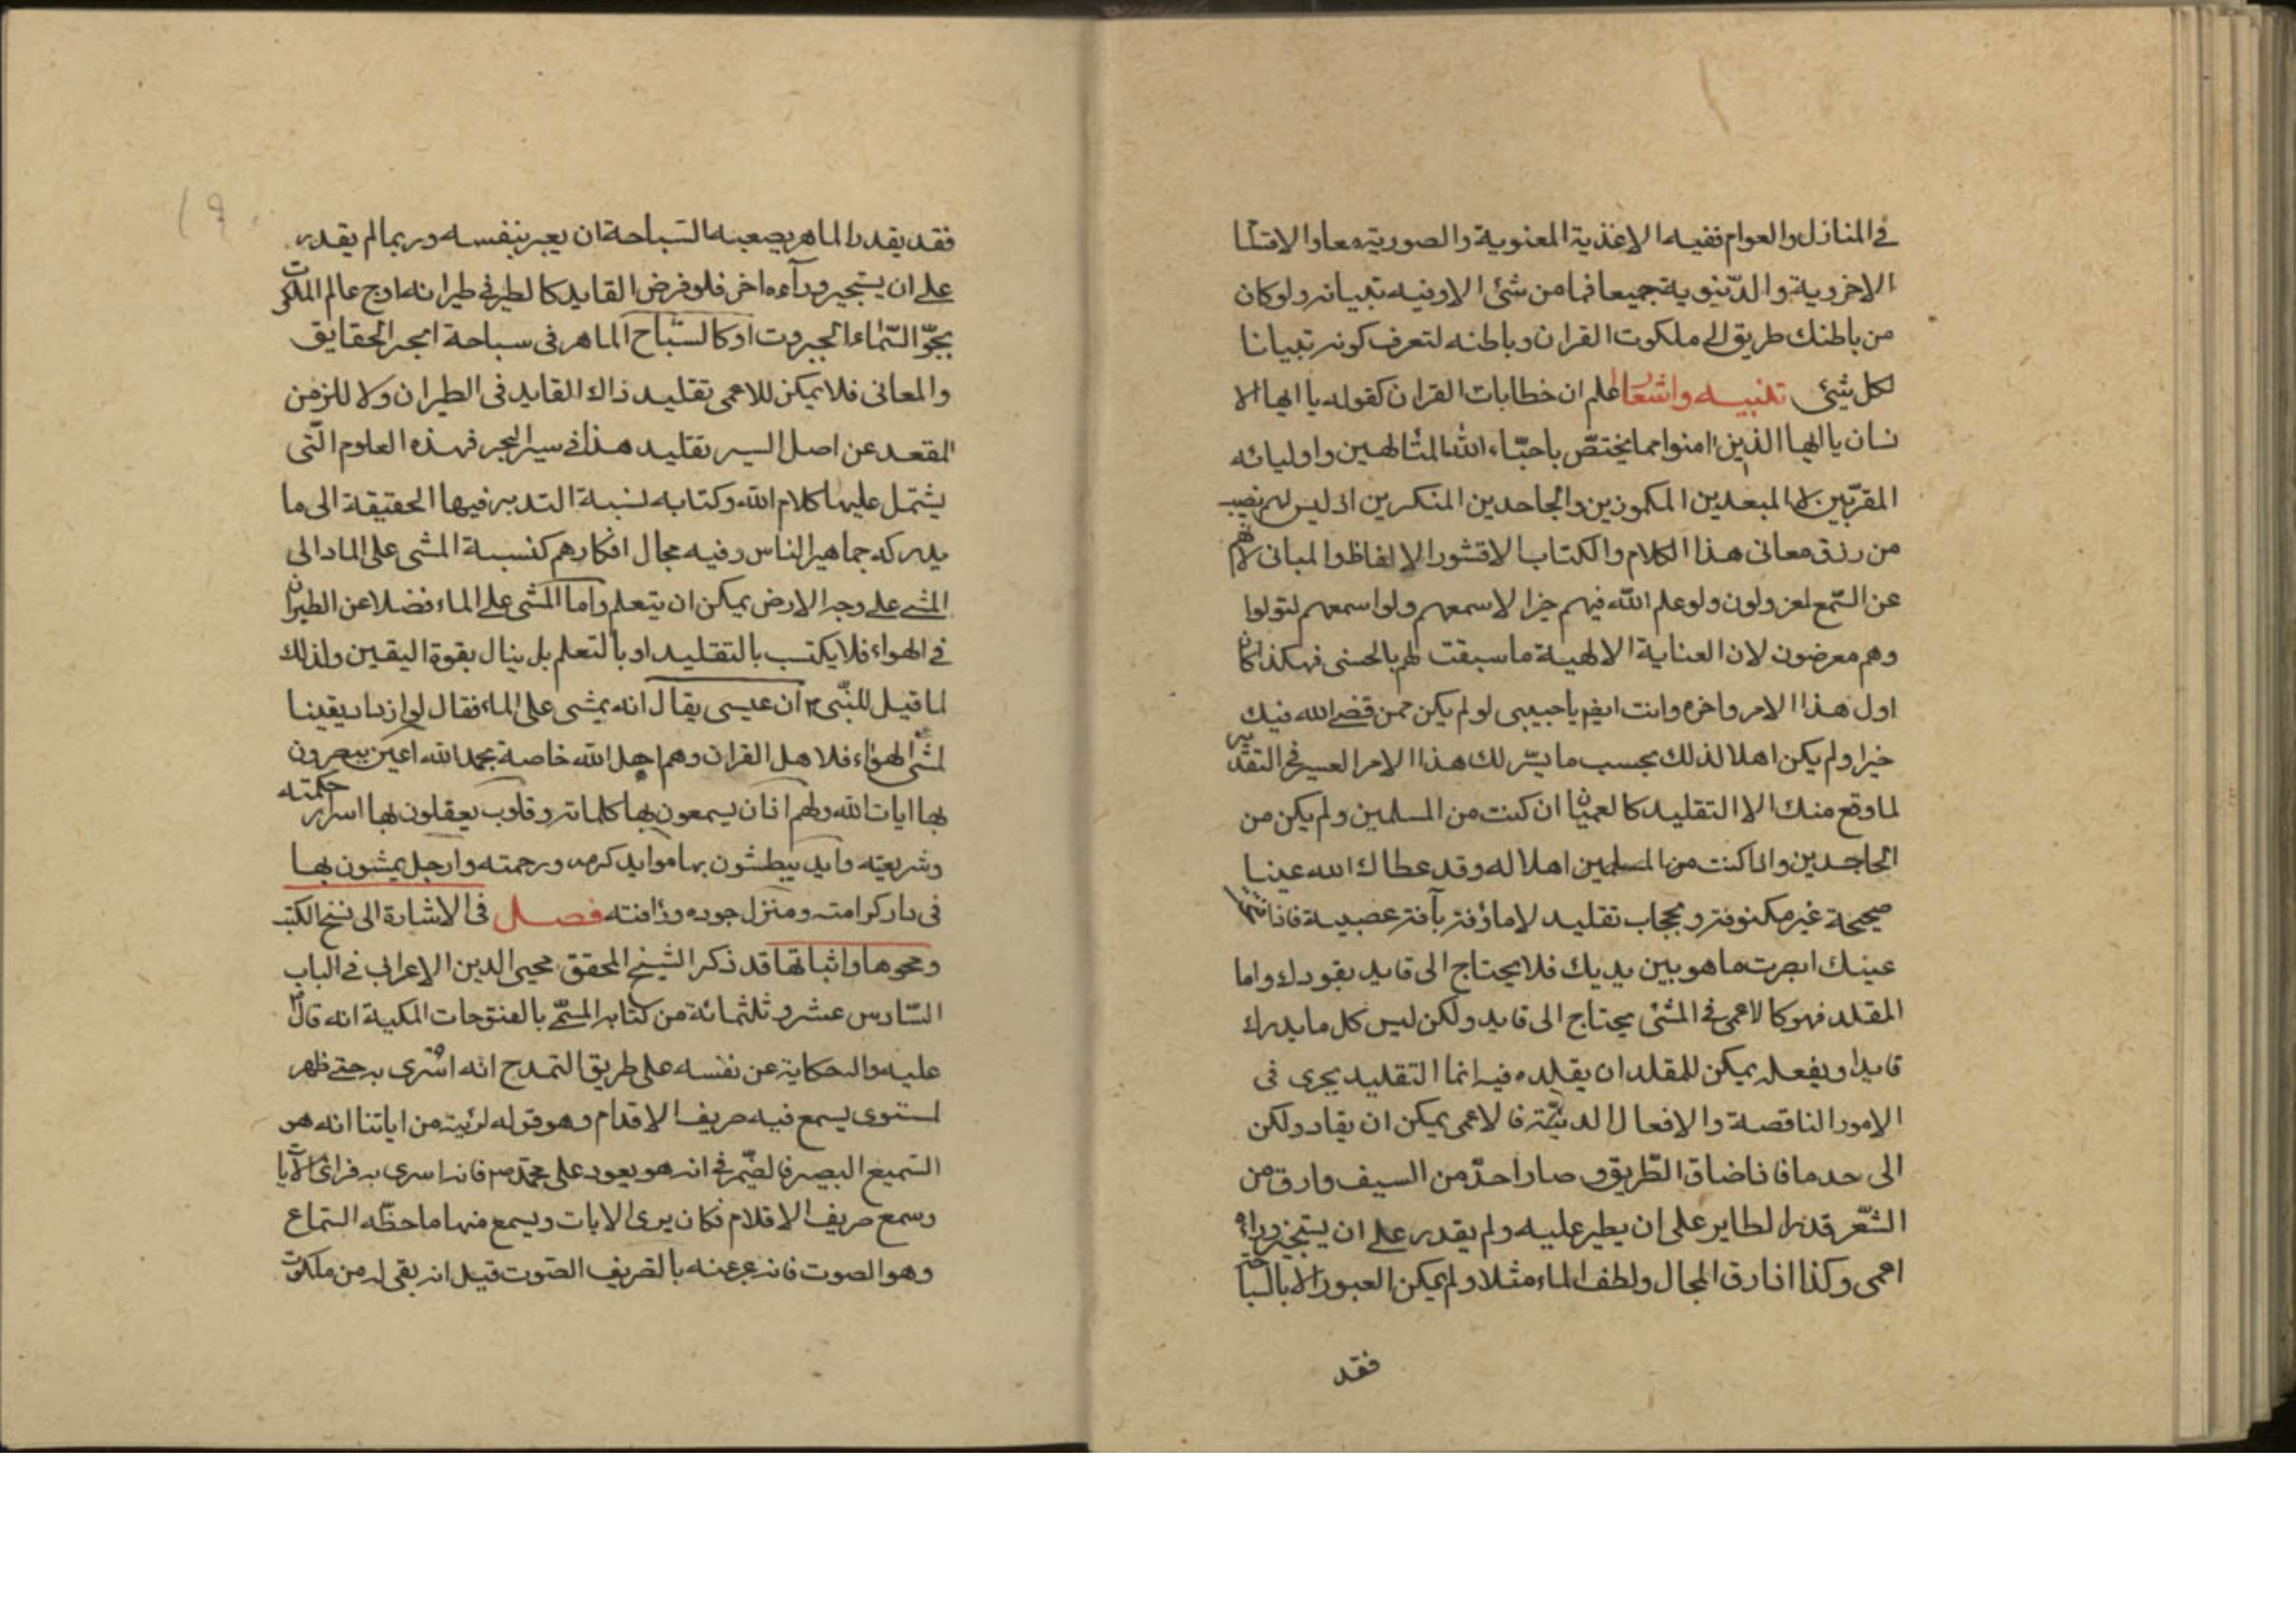 في المنازل والعوام ففيه الاغذية المعنوية والصورية معا والاقتنا
الاخروية والدّنيوية جميعا فما من شئ الا وفيه تبيانه ولو كان
من باطنك طريق الى ملكوت القران وباطنه لتعرف كونه تبيانا
لكل شئ تنبيه واشعار اعلم ان خطابات القران كقوله يا ايها الا
نسان يا ايها الذين امنوا مما يختصّ باحبّاء الله المتالهين واوليائه
المقرّبين لا المبعدين المكموذين والجاحدين المنكرين اذ ليس لهم نصيب
من رزق معانى هذا الكلام والكتاب الا قشور الالفاظ والمبانى لانهم
عن السّمع لمعزولون ولو علم الله فيهم خيرا لاسمعهم ولو اسمعهم لتولوا
وهم معرضون لان العناية الالهية ما سبقت لهم بالحسنى فهكذا كان
اول هذا الامر واخره وانت ايضا يا حبيبى لو لم يكن ممن قضى الله فيك
خيرا ولم يكن اهلا لذلك بحسب ما يسّر لك هذا الامر العسير فى التقدير
لما وقع منك الا التقليد كالعميان ان كنت من المسلمين ولم يكن من
الجاحدين واذا كنت من المسلمين اهلا له وقد عطاك الله عينا
صحيحة غير مكنوفة وبحجاب تقليد لا ماؤفة بآفة عصبية فاذا فتحتها
عينك ابصرت ما هو بين يديك فلا يحتاج الى قايد يقودك واما
المقلد فهو كالاعمى في المشى يحتاج الى قايد ولكن ليس كل ما يدرك
قايدا ويفعله يمكن للمقلد ان يقلده فيه انما التقليد يجرى فى
الامور الناقصة والافعال الدنيّة فالاعمى يمكن ان يقاد ولكن
الى حد ما فاذا ضاق الطّريق وصار احدّ من السيف وادق من
الشّعر قدر الطاير على ان يطير عليه ولم يقدر على ان يستجيز وراءه
اعمى وكذا اذا رق المجال ولطف الماء مثلا ولم يمكن العبور الا بالسباحة
فقد
فقد يقدر الماهر بصعبه السّباحة ان يعبر بنفسه وربما لم يقدر
على ان يستجير ورآءه اخر فلو فرض القايد كالطير في طيرانه اوج عالم الملكوت
بجوّ السّماء الجبروت او كالسّباح الماهر فى سباحة ابحر الحقايق
والمعانى فلا يمكن للاعمى تقليد ذاك القايد فى الطيران ولا للزمن
المقعد عن اصل السير تقليد هذا في سير البحر فهذه العلوم الّتى
يشتمل عليها كلام الله وكتابه لنسبة التدبر فيها الحقيقة الى ما
يدركه جماهير الناس وفيه مجال افكارهم كنسبة المشى على الماء الى
المشى على وجه الارض يمكن ان يتعلم واما المشى على الماء فضلا عن الطيران
في الهواء فلا يكتسب بالتقليد او بالتعلم بل ينال بقوة اليقين ولذلك
لما قيل للنّبى ان عيسى يقال انه يمشى على الماء فقال لو ازداد يقينا
لمشى الهواء فلاهل القران وهم اهل الله خاصة بحمد الله اعين يبصرون
بها ايات الله ولهم اذان يسمعون بها كلماته وقلوب يعقلون بها اسرار حكمته
وشريعته وايد يبطشون بها موايد كرمه ورحمته وارجل يمشون بها
فى دار كرامته ومنزل جوده ورافته فصل فى الاشارة الى نسخ الكتب
ومحوها واثباتها قد ذكر الشيخ المحقق محيى الدين الاعرابى في الباب
السّادس عشر وثلثمائة من كتابه المسمّى بالفتوحات المكية انه قال
عليه واله حكاية عن نفسه على طريق التمدح انه اسرى به حتى ظهر
لمستوى يسمع فيه صريف الاقدام وهو قوله لنريه من اياتنا انه هو
السّميع البصير فالضّمير في انه هو يعود على محمّد ص فانه اسرى به فراى الايات
وسمع صريف الاقلام فكان يرى الايات ويسمع منها ما حظّه السّماع
وهو الصوت فانه عبر عنه بالصريف الصّوت قيل انه بقى له من ملكوت